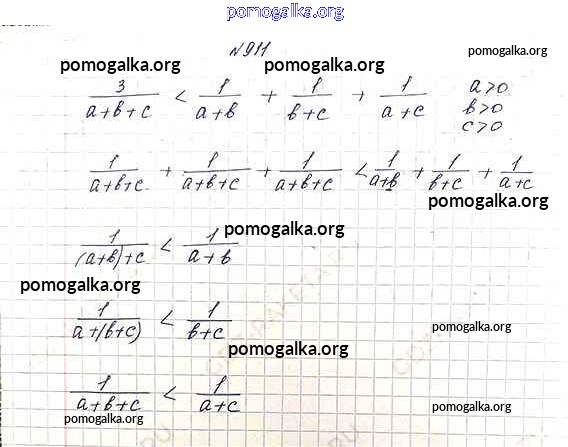 pomogalka.org
N911
pomogalka.org pomogalka.org pomogalka.org
3/(a+b+c) < 1/(a+b) + 1/(b+c) + 1/(a+c) a>0
b>0
c>0
1/(a+b+c) + 1/(a+b+c) + 1/(a+b+c) < 1/(a+b) + 1/(b+c) + 1/(a+c)
pomogalka.org
pomogalka.org
1/((a+b)+c) < 1/(a+b)
pomogalka.org
1/(a+(b+c)) < 1/(b+c)
pomogalka.org
pomogalka.org
1/(a+b+c) < 1/(a+c)
pomogalka.org
pomogalka.org